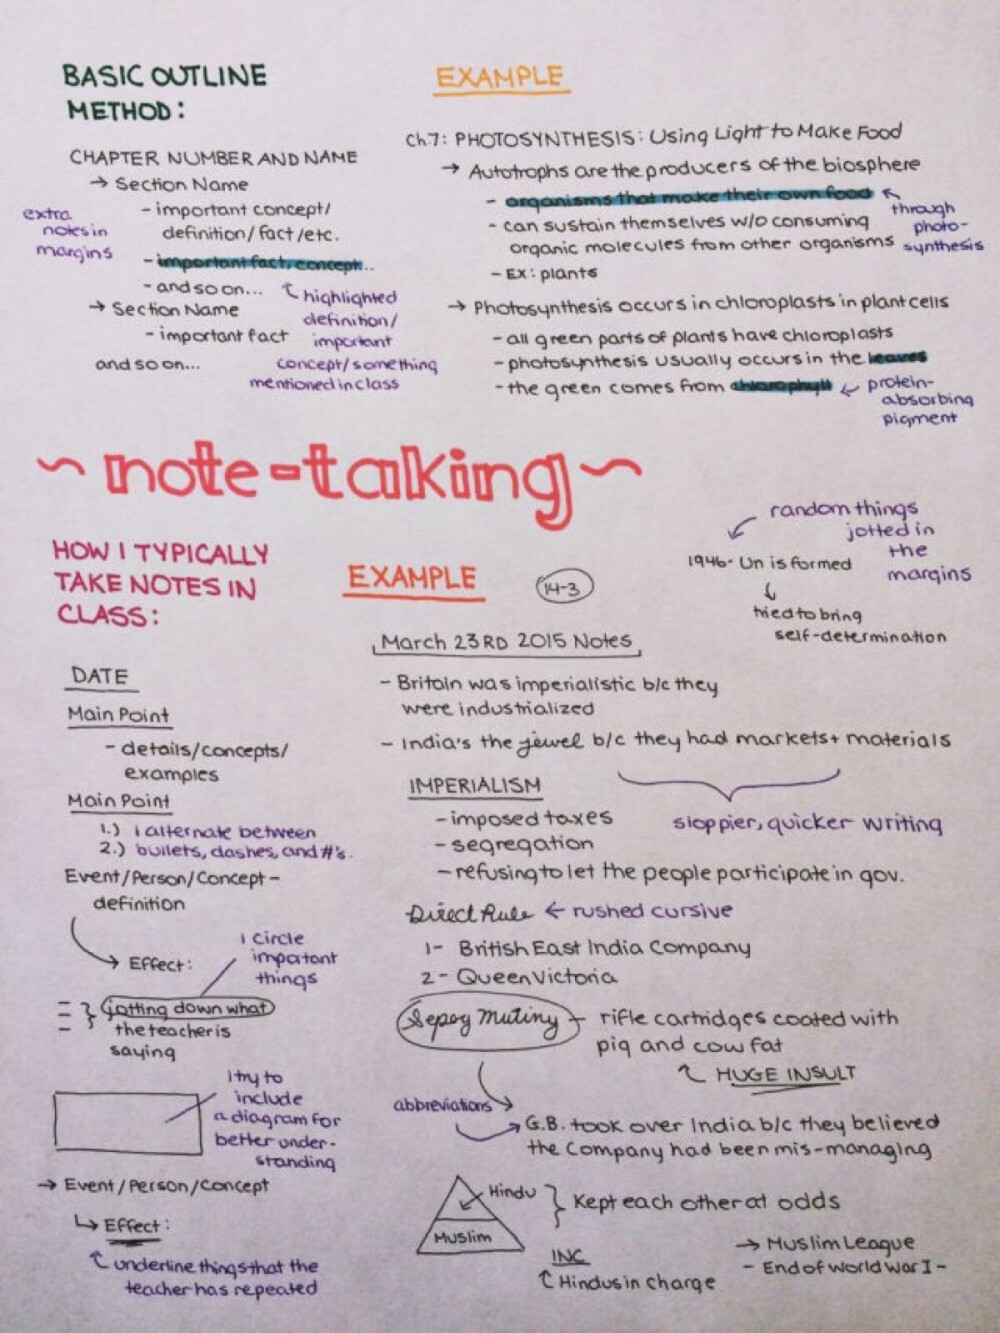 BASIC OUTLINE
METHOD:
CHAPTER NUMBER AND NAME
→ Section Name
- important concept/
definition/fact/etc.
- important fact, concept...
- and so on...
→ Section Name
- important fact
and so on...
extra
notes in
margins
highlighted
definition/
important
concept/something
mentioned in class
EXAMPLE
Ch.7: PHOTOSYNTHESIS: Using Light to Make Food
→ Autotrophs are the producers of the biosphere
- organisms that make their own food
- can sustain themselves w/o consuming
organic molecules from other organisms
- EX: plants
through
photo-
synthesis
→ Photosynthesis occurs in chloroplasts in plant cells
- all green parts of plants have chloroplasts
- photosynthesis usually occurs in the leaves
- the green comes from chlorophyll
protein-
absorbing
pigment
~ note-taking ~
HOW I TYPICALLY
TAKE NOTES IN
CLASS:
DATE
Main Point
- details/concepts/
examples
Main Point
1.) I alternate between
2.) bullets, dashes, and #'s.
Event/Person/Concept -
definition
→ Effect:
I circle
impotant
things
jotting down what
the teacher is
saying
I try to
include
a diagram for
better under-
standing
→ Event/Person/Concept
↳ Effect:
underline things that the
teacher has repeated
EXAMPLE
14-3
random things
jotted in
the
margins
1946- Un is formed
tried to bring
self-determination
March 23RD 2015 Notes
- Britain was imperialistic b/c they
were industrialized
- India's the jewel b/c they had markets + materials
sloppier, quicker writing
IMPERIALISM
- imposed taxes
- segregation
- refusing to let the people participate in gov.
Direct Rule ← rushed cursive
1- British East India Company
2- Queen Victoria
Sepoy Mutiny - rifle cartridges coated with
pig and cow fat
HUGE INSULT
abbreviations
G.B. took over India b/c they believed
the Company had been mis-managing
Hindu
Muslim
Kept each other at odds
INC
Hindus in charge
→ Muslim League
- End of World War I -